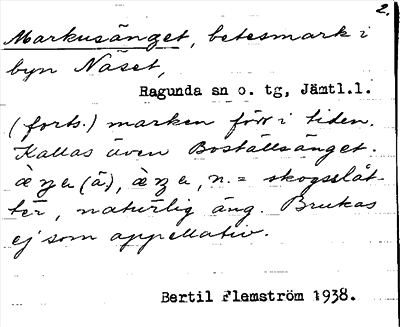 2.
Markusänget, betesmark i
byn Näset,
Ragunda sn o. tg, Jämtl.l.
(forts.) marken förr i tiden.
Kallas även Boställsänget.
n. = skogsslåt-
ter, naturlig äng. Brukas
ej som appellativ.
Bertil Flemström 1938.